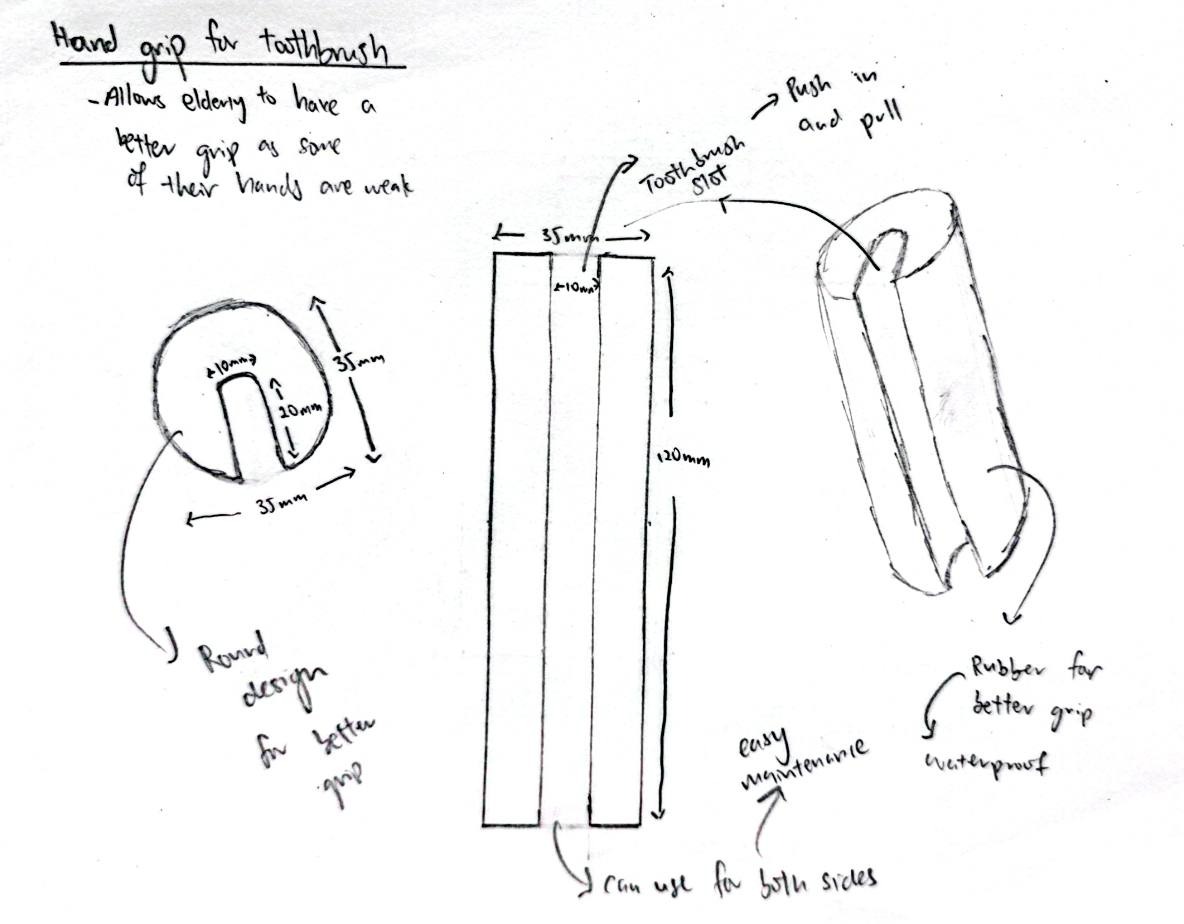 Hand grip for toothbrush
- Allows elderly to have a
better grip as some
of their hands are weak
Push in
and pull
Toothbrush
slot
35mm
10mm
10mm
20mm
35mm
35mm
120mm
Round
design
for better
grip
Rubber for
better grip
waterproof
easy
maintenance
can use for both sides